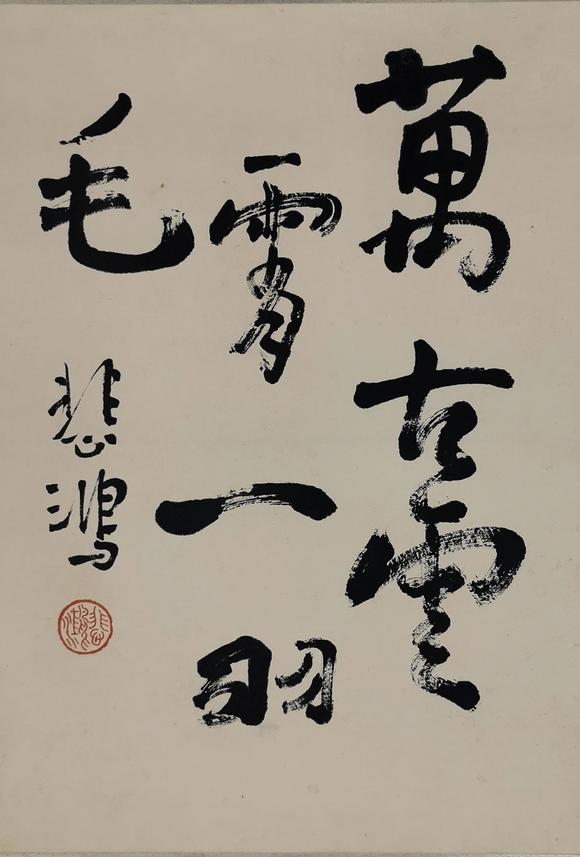 萬古雲
霄一羽
毛
悲鴻
悲鴻